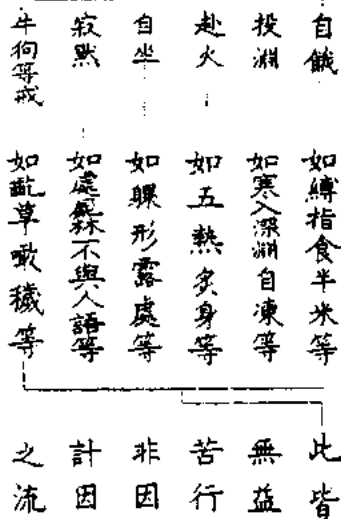 自餓　如縛指食半米等
投淵　如寒入深淵自凍等
赴火　如五熱炙身等
自坐　如躶形露處等
寂默　如處屍林不與人語等
牛狗等戒　如齕草噉穢等
此皆
無益
苦行
非因
計因
之流